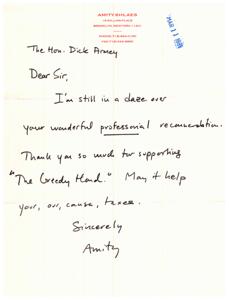 AMITY SHLAES
MAR 11 1999
The Hon. Dick Armey
Dear Sir,
I'm still in a daze over
your wonderful professional recommendation.
Thank you so much for supporting
"The Greedy Hand." May it help
your, our, cause, taxes.
Sincerely
Amity